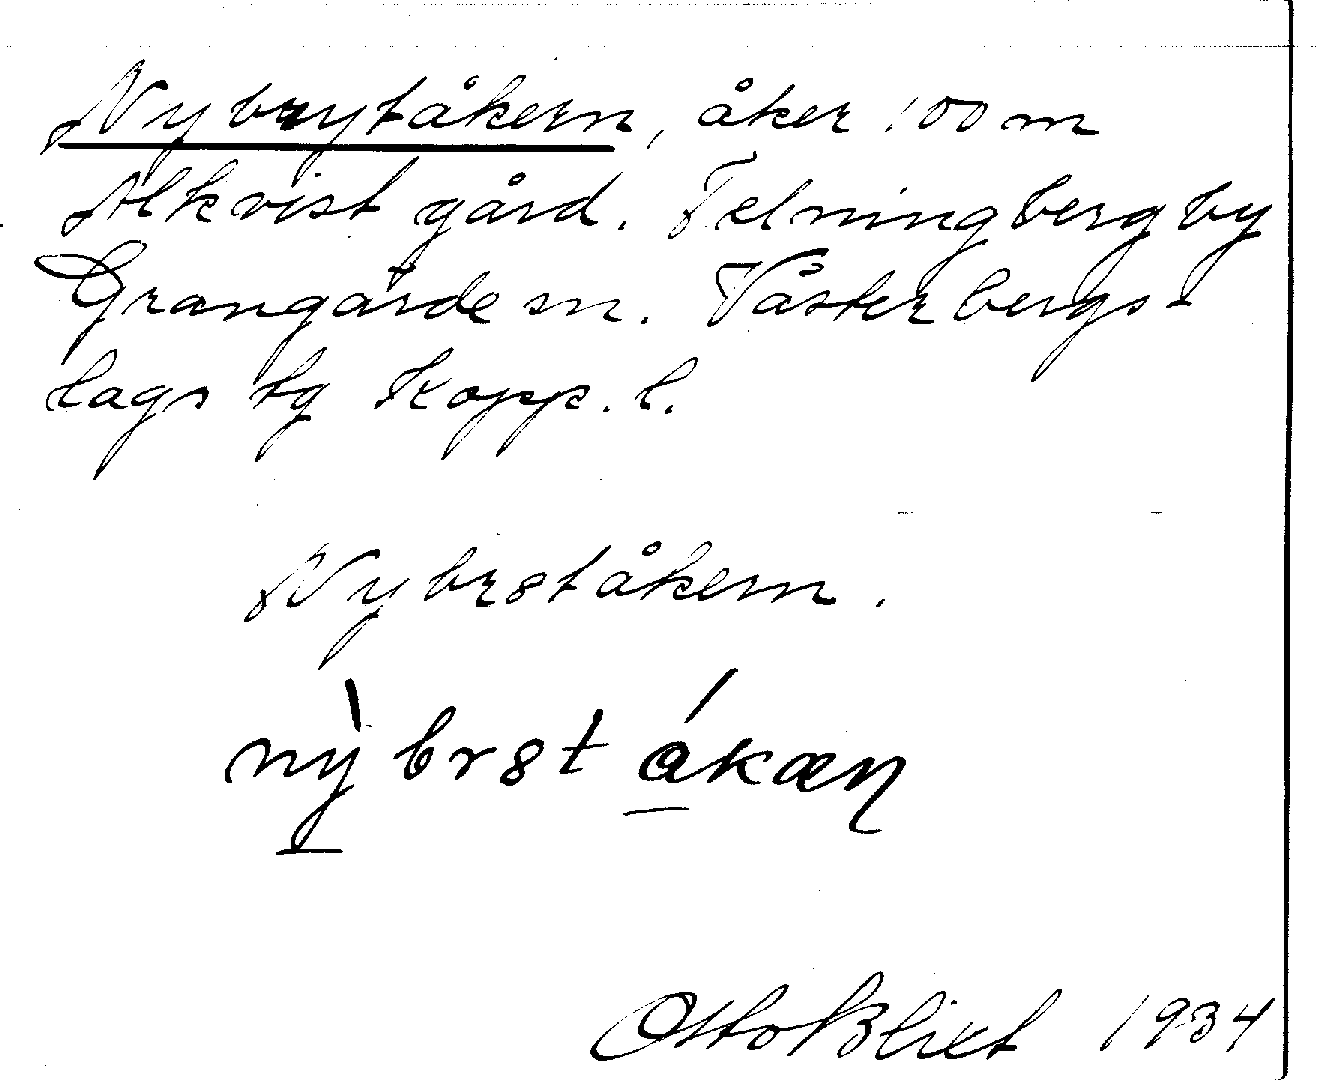 Nybrytåkern, åker 100 m
Alkvist gård. Telningberg by
Grangärde sn. Väster bergs-
lags tg Kopp. l.
Nybr8tåkern.
nỳbr8t ákæɳ
Otto Blixt 1934